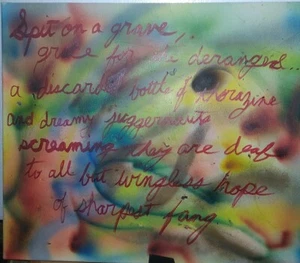 Spit on a grave,
grace for the deranged...
a discarded bottle of thorazine
and dreamy juggernauts
screaming they are deaf
to all but wingless hope
of sharpest fang